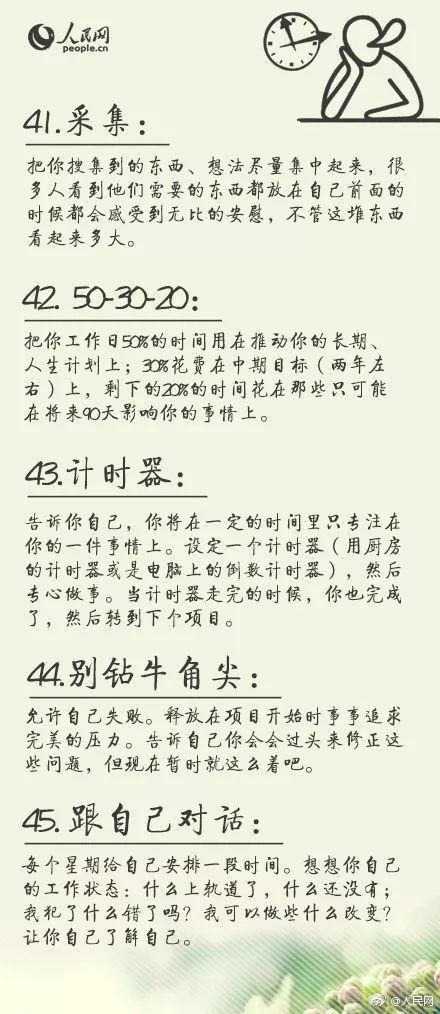 人民网
people.cn
41.采集：
把你搜集到的东西、想法尽量集中起来，很
多人看到他们需要的东西都放在自己前面的
时候都会感受到无比的安慰，不管这堆东西
看起来多大。
42. 50-30-20：
把你工作日50%的时间用在推动你的长期、
人生计划上；30%花费在中期目标（两年左
右）上，剩下的20%的时间花在那些只可能
在将来90天影响你的事情上。
43.计时器：
告诉你自己，你将在一定的时间里只专注在
你的一件事情上。设定一个计时器（用厨房
的计时器或是电脑上的倒数计时器），然后
专心做事。当计时器走完的时候，你也完成
了，然后转到下个项目。
44.别钻牛角尖：
允许自己失败。释放在项目开始时事事追求
完美的压力。告诉自己你会会过头来修正这
些问题，但现在暂时就这么着吧。
45.跟自己对话：
每个星期给自己安排一段时间。想想你自己
的工作状态：什么上轨道了，什么还没有；
我犯了什么错了吗？我可以做些什么改变？
让你自己了解自己。
@人民网